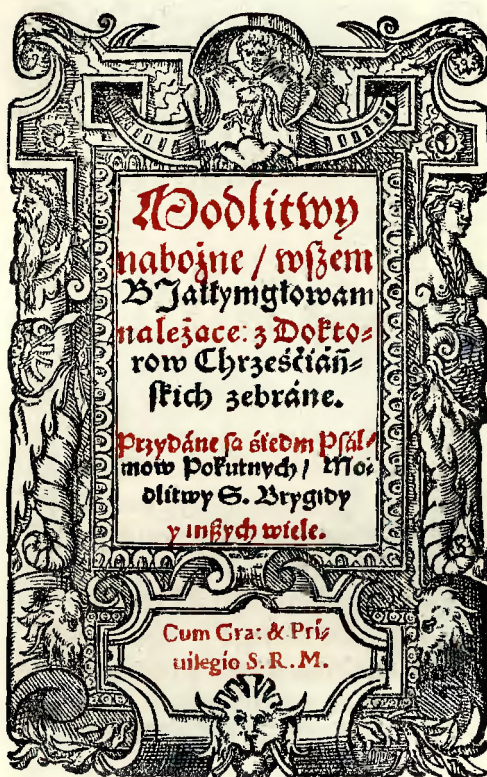 Modlitwy
nabożne / wſzem
Białłymgłowam
należace: z Dokto⸗
row Chrześćiáń⸗
ſkich zebráne.
Przydáne ſa śiedm Pſál⸗
mow Pokutnych / Mo⸗
dlitwy S. Brygidy
y inßych wiele.
Cum Gra: & Pri⸗
uilegio S. R. M.